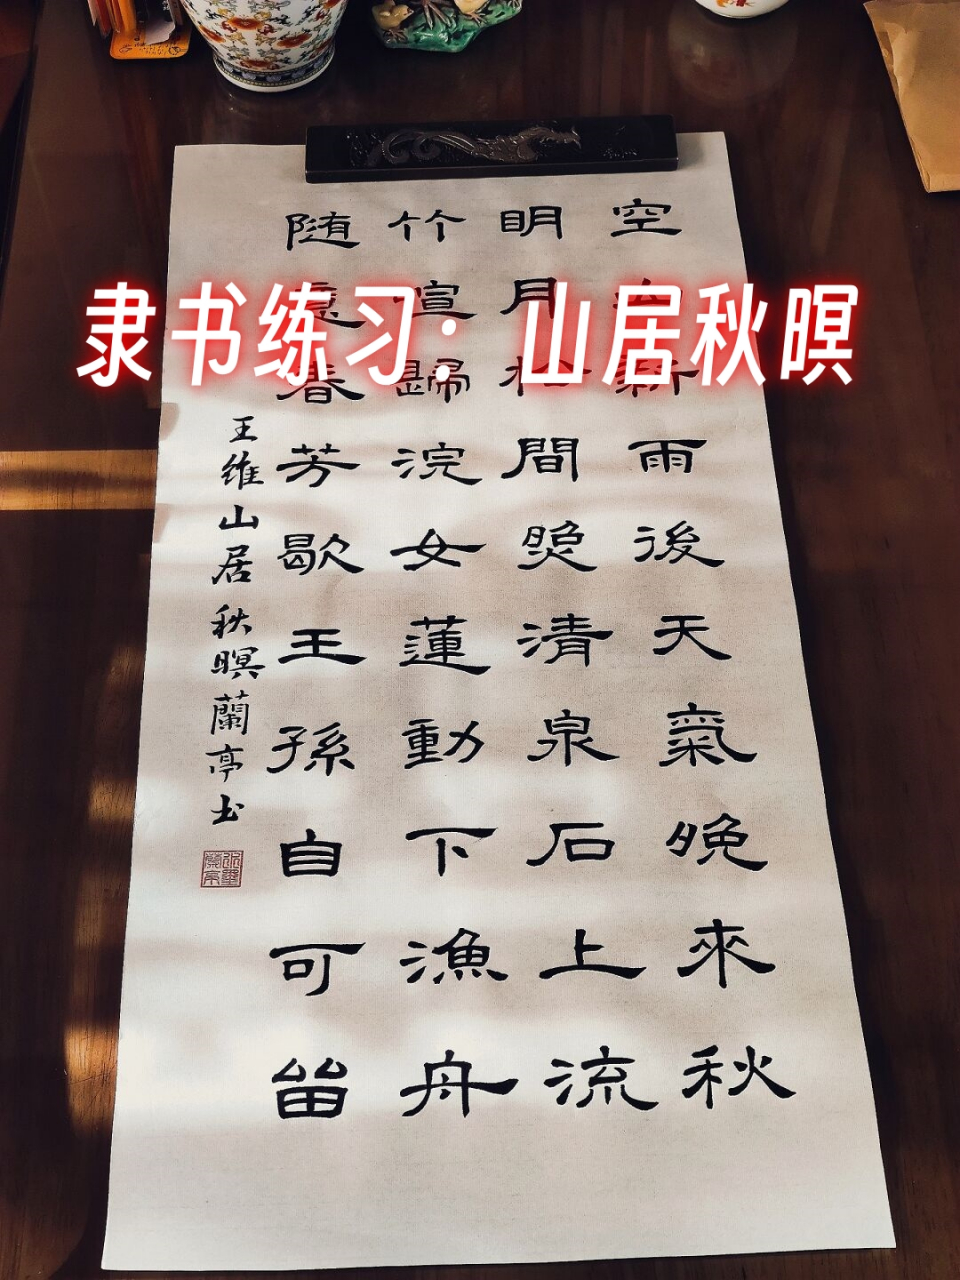 隶书练习：山居秋暝
空山新雨後天氣晚來秋
明月松間照清泉石上流
竹喧歸浣女蓮動下漁舟
随意春芳歇王孫自可留
王維山居秋暝蘭亭书